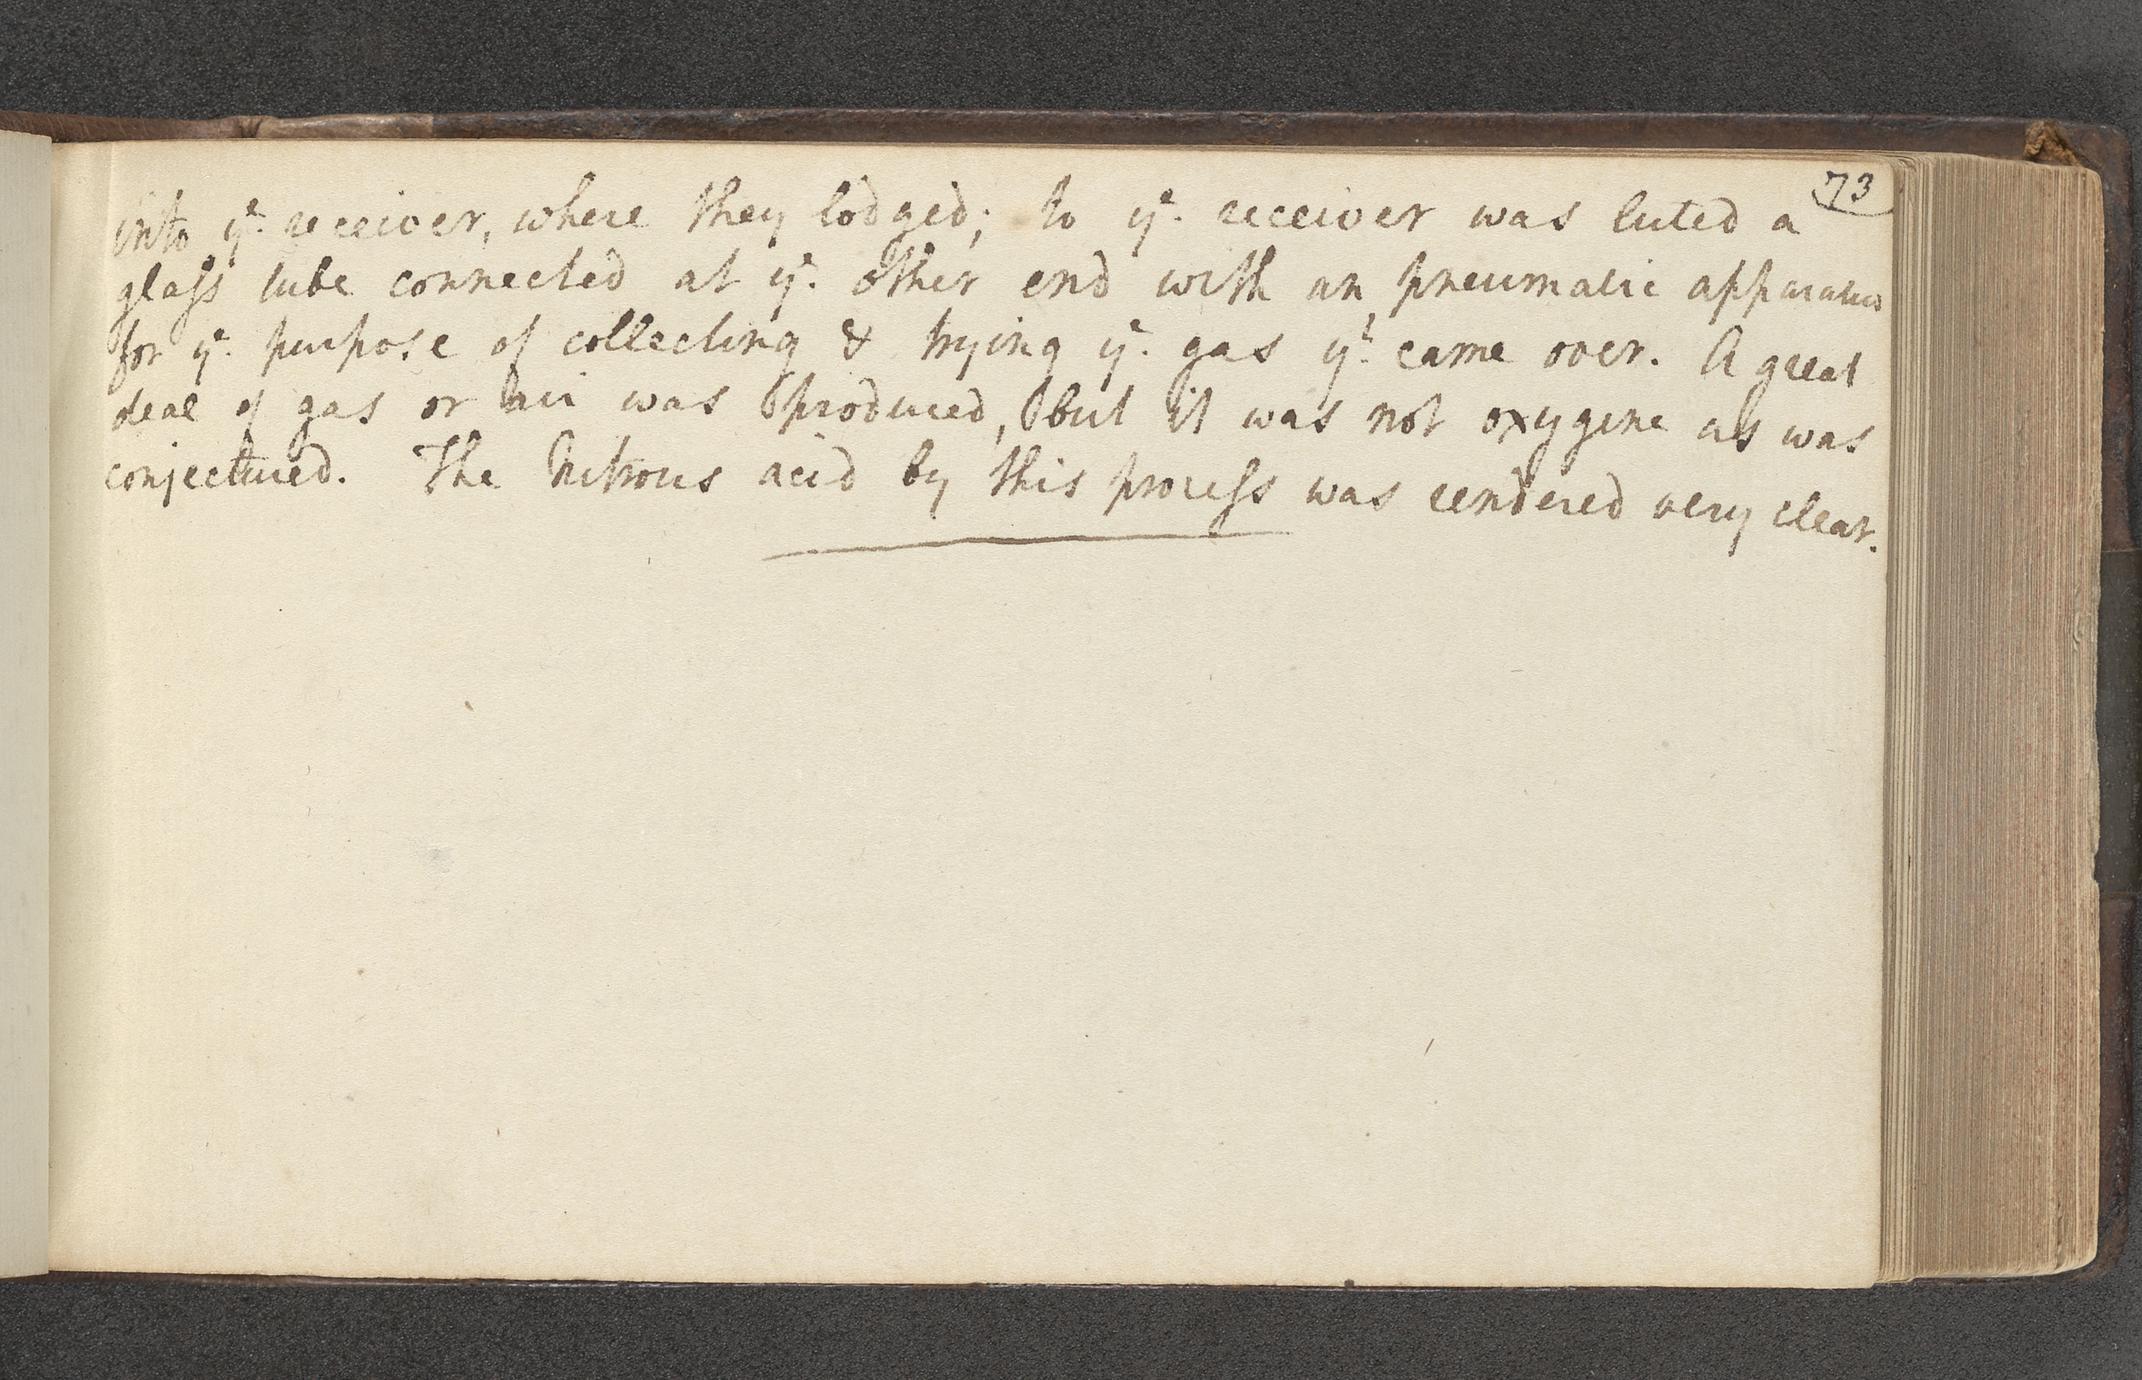 73
into yᵉ. receiver, where they lodged; to yᵉ. receiver was luted a
glaſs tube connected at yᵉ. other end with an pneumatic apparatus
for yᵉ. purpose of collecting & trying yᵉ. gas yᵗ. came over. A great
deal of gas or air was produced, but it was not oxygene as was
conjectured. The Nitrous acid by this proceſs was rendered very clear.